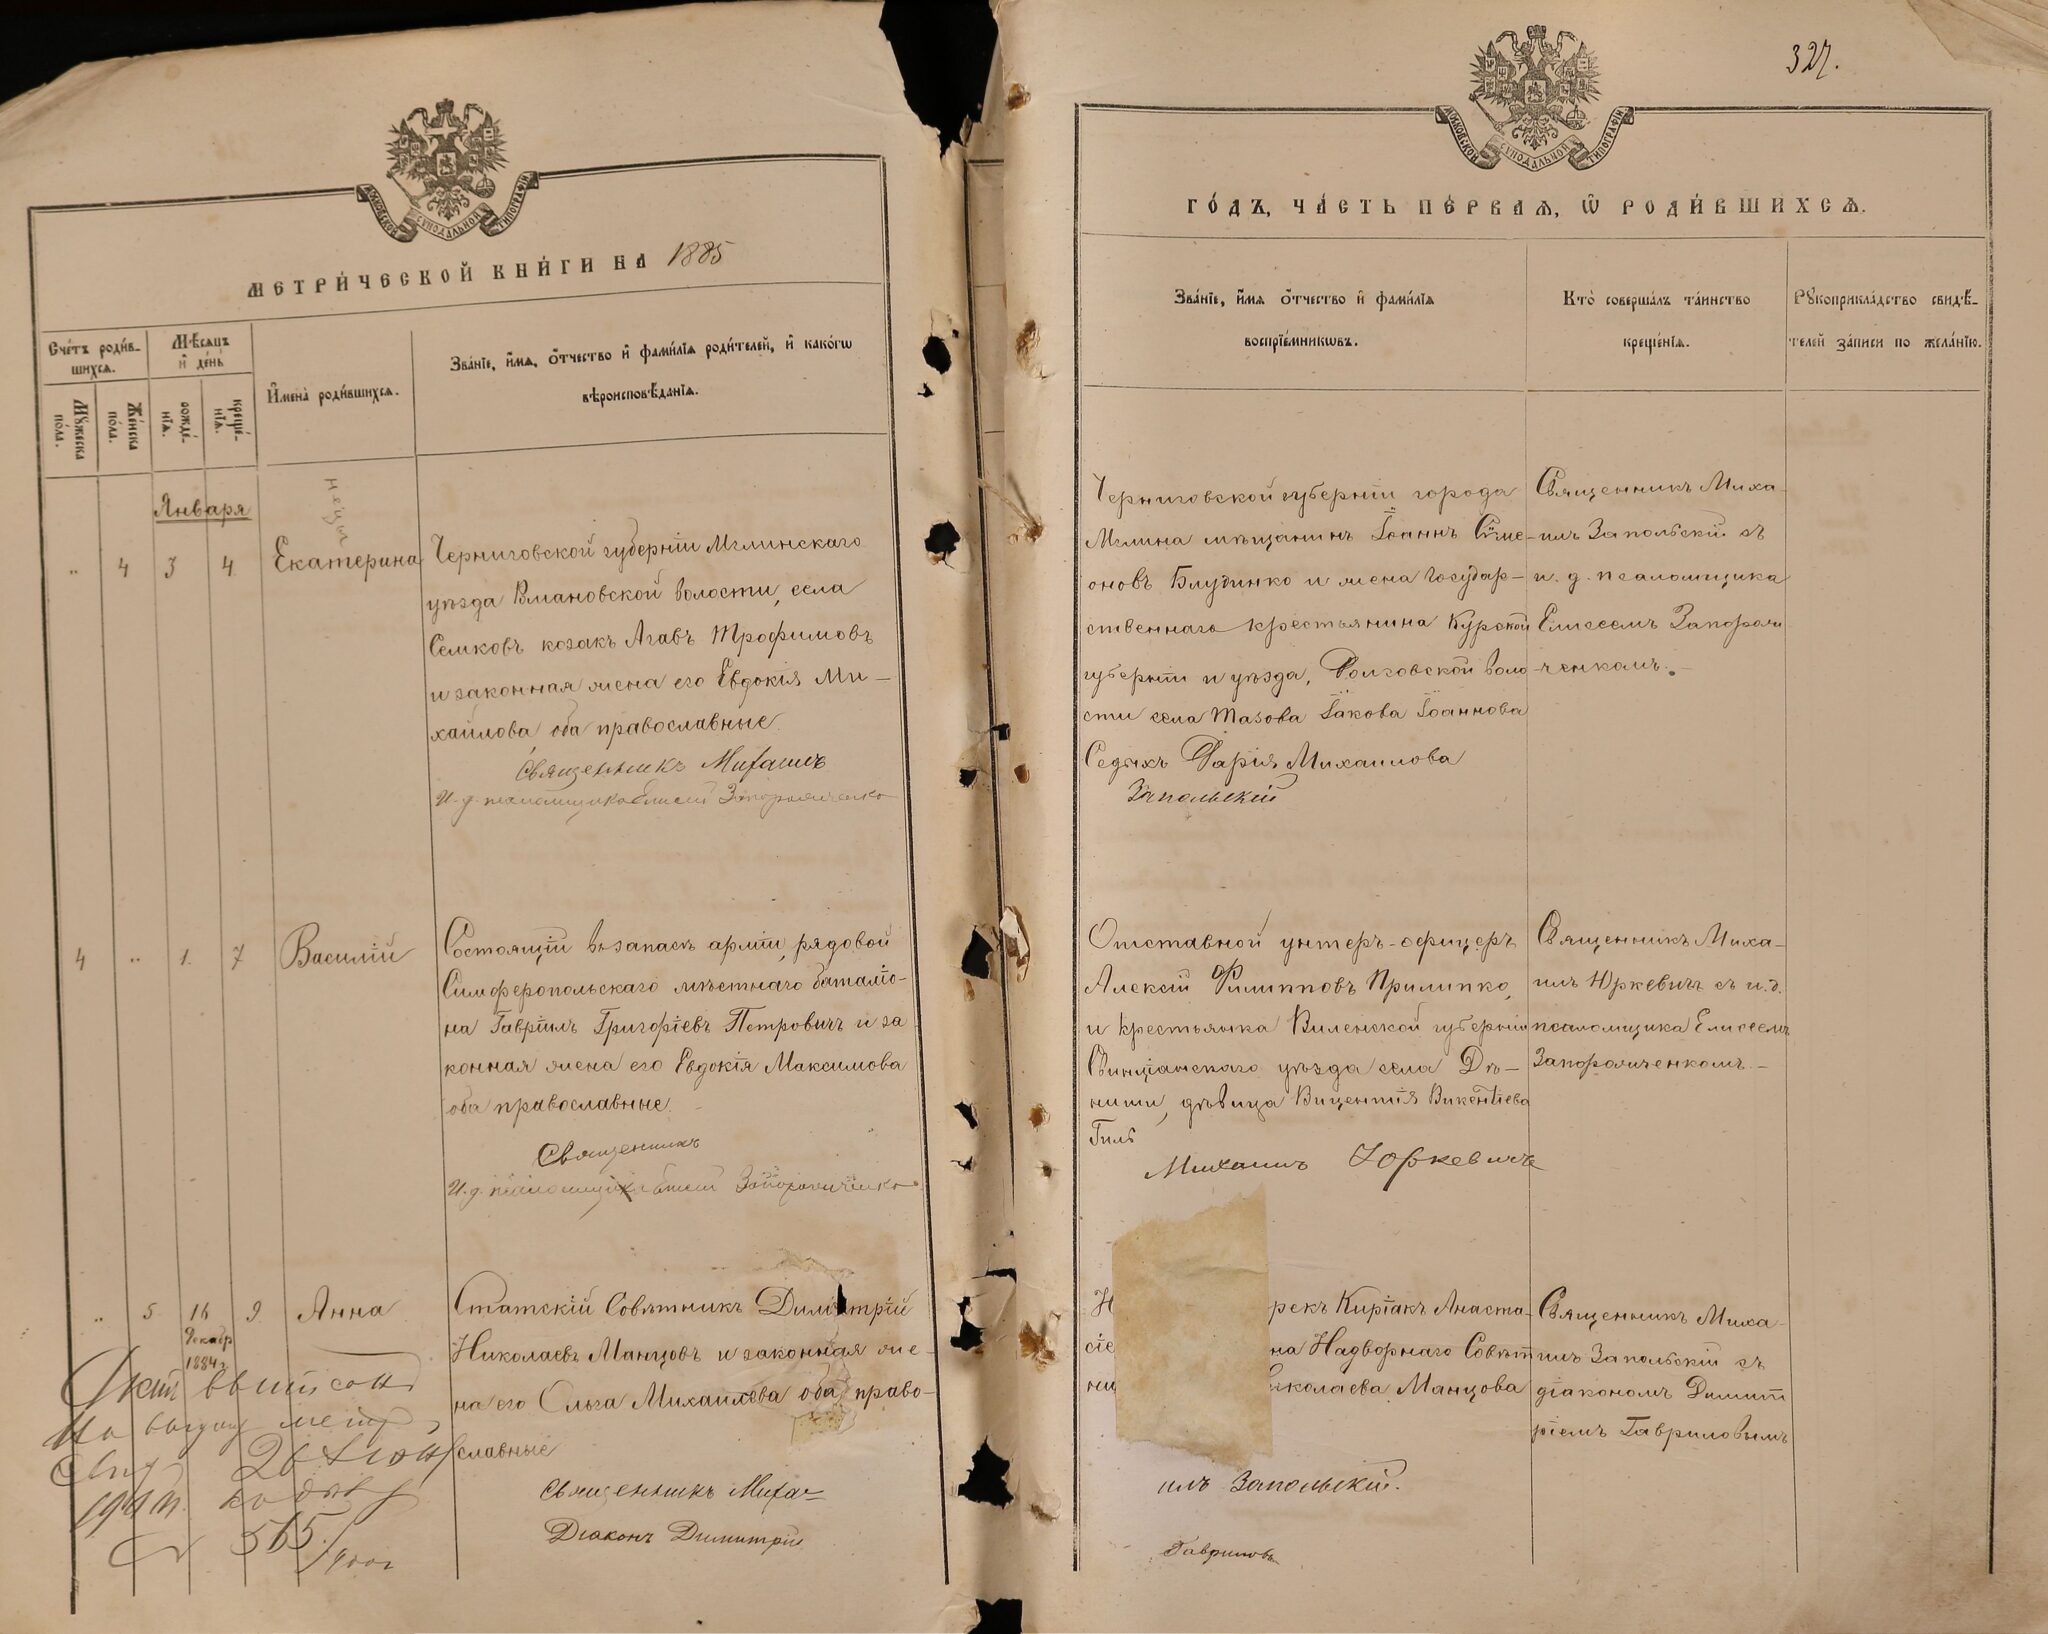 МОСКОВСКОЙ СУНОДАЛЬНОЙ ТИПОГРАФІИ
МЕТРИ́ЧЕСКОЙ КНИ́ГИ НА 1885
Сче́тъ роди́в-
шихсѧ.
Мѣ́сѧцъ
и҆ де́нь
Мꙋ́жеска
по́ла.
Же́нска
по́ла.
рожде́-
нїѧ.
креще́-
нїѧ.
И҆мена̀ роди́вшихсѧ.
Зва́нїе, и҆́мѧ, ѻ҆́тчество и҆ фами́лїѧ роди́телей, и҆ како́гѡ
вѣроисповѣ́данїѧ.
Января
„ 4 3 4 Екатерина
Черниговской губерніи Мглинскаго
уѣзда волости, села
козакъ Агавъ Трофимовъ
и законная жена его Евдокія Ми-
хайлова оба православные
Священникъ Михаилъ
И. д. псаломщика Елисей Запорожченко
4 „ 1. 7 Василій
Состоящій въ запасѣ арміи, рядовой
Симферопольскаго мѣстнаго баталіо-
на Гавріилъ Григоріевъ Петровичъ и за
конная жена его Евдокія Максимова
оба православные.
Священникъ
И. д. псаломщика Елисей Запорожченко
„ 5 16 9. Анна
Декабр
1884 г.
Статскій Совѣтникъ Димитрій
Николаевъ Манцовъ и законная же-
на его Ольга Михайлова оба право-
славные
Священникъ Миха-
Діаконъ Димитрій
565
327.
МОСКОВСКОЙ СУНОДАЛЬНОЙ ТИПОГРАФІИ
ГО́ДЪ, ЧА́СТЬ ПЕ́РВАѦ, Ѡ҆ РОДИ́ВШИХСѦ.
Зва́нїе, и҆́мѧ ѻ҆́тчество и҆ фами́лїѧ
воспрїе́мникѡвъ.
Кто̀ соверша́лъ та́инство
креще́нїѧ.
Рꙋкоприкла́дство свидѣ́-
телей за́писи по жела́нїю.
Черниговской губерніи города
Мглина мѣщанинъ Іоаннъ Симе-
оновъ и жена Государ-
ственнаго крестьянина Курской
губерніи и уѣзда, Долговской воло
сти села Тазова Іакова Іоаннова
Седыхъ Дарія Михаилова
Запольскій
Священникъ Миха-
илъ Запольскій съ
и. д. псаломщика
Елисеемъ Запорож
ченкомъ.
Отставной унтеръ-офицеръ
Алексій Филипповъ Прилипко,
и крестьянка Виленской губерніи
Свинціанскаго уѣзда села Дѣ-
ниши, дѣвица Вицентія Викентіева
Гиль
Михаилъ Юркевичъ
Священникъ Миха-
илъ Юркевичъ съ и. д.
псаломщика Елисеемъ
Запорожченкомъ.
рекъ Киріакъ Анаста-
сіе на Надворнаго Совѣт
ни иколаева Манцова
илъ Запольскій.
Гавриловъ
Священникъ Миха-
илъ Запольскій съ
діакономъ Димит
ріемъ Гавриловымъ